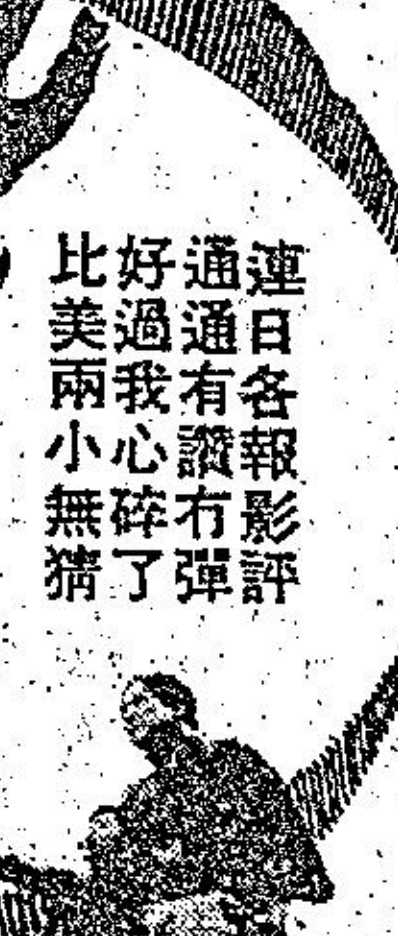 連日各報影評
通通有讚冇彈
好過我心碎了
比美兩小無猜